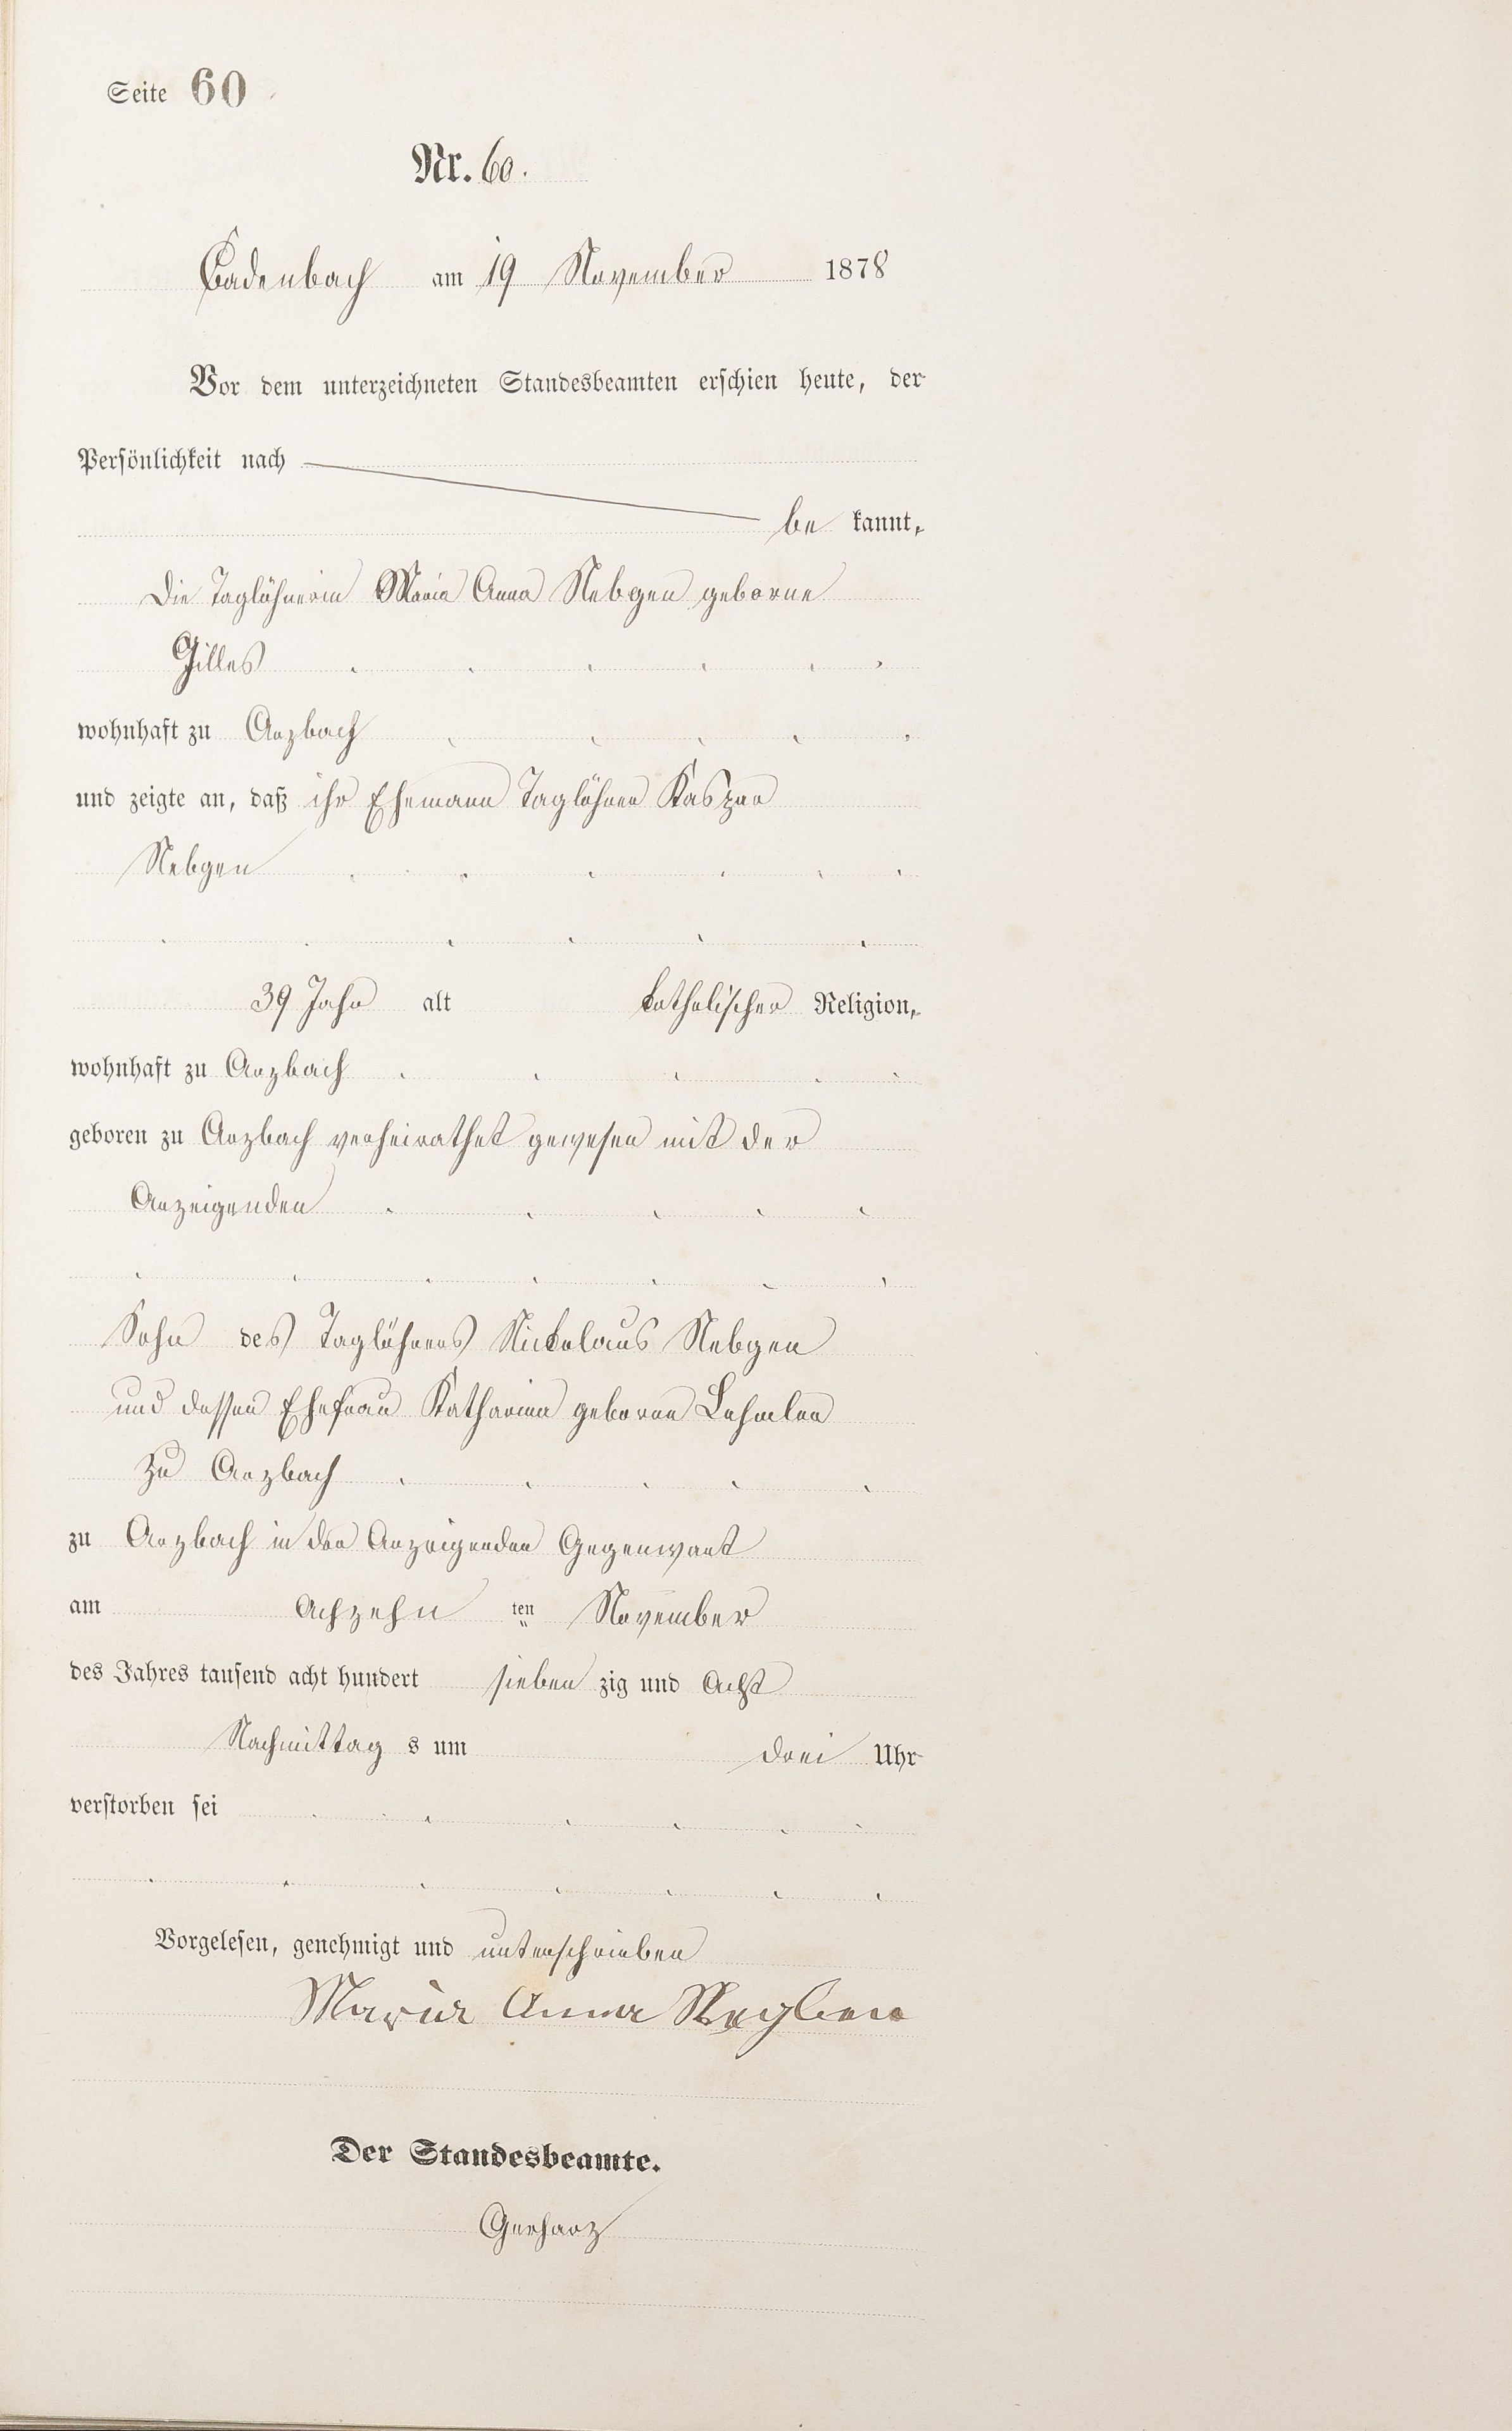 Seite 60
Nr. 60.
Cadenbach am 19 November 1878
Vor dem unterzeichneten Standesbeamten erschien heute, der
Persönlichkeit nach
be kannt,
die Taglöhnerin Maria Anna Nebgen geborne
Gilles
wohnhaft zu Arzbach
und zeigte an, daß ihr Ehemann Taglöhner Kaspar
Nebgen
39 Jahr alt katholischer Religion,
wohnhaft zu Arzbach
geboren zu Arzbach verheirathet gewesen mit der
Anzeigenden
Sohn des Taglöhners Nickolaus Nebgen
und dessen Ehefrau Katharina geborne
zu Arzbach
zu Arzbach in der Anzeigenden Gegenwart
am Achzehn ten November
des Jahres tausend acht hundert sieben zig und Acht
Nachmittag s um drei Uhr
verstorben sei
Vorgelesen, genehmigt und unterschrieben
Maria Anna Negben
Der Standesbeamte.
Gerharz